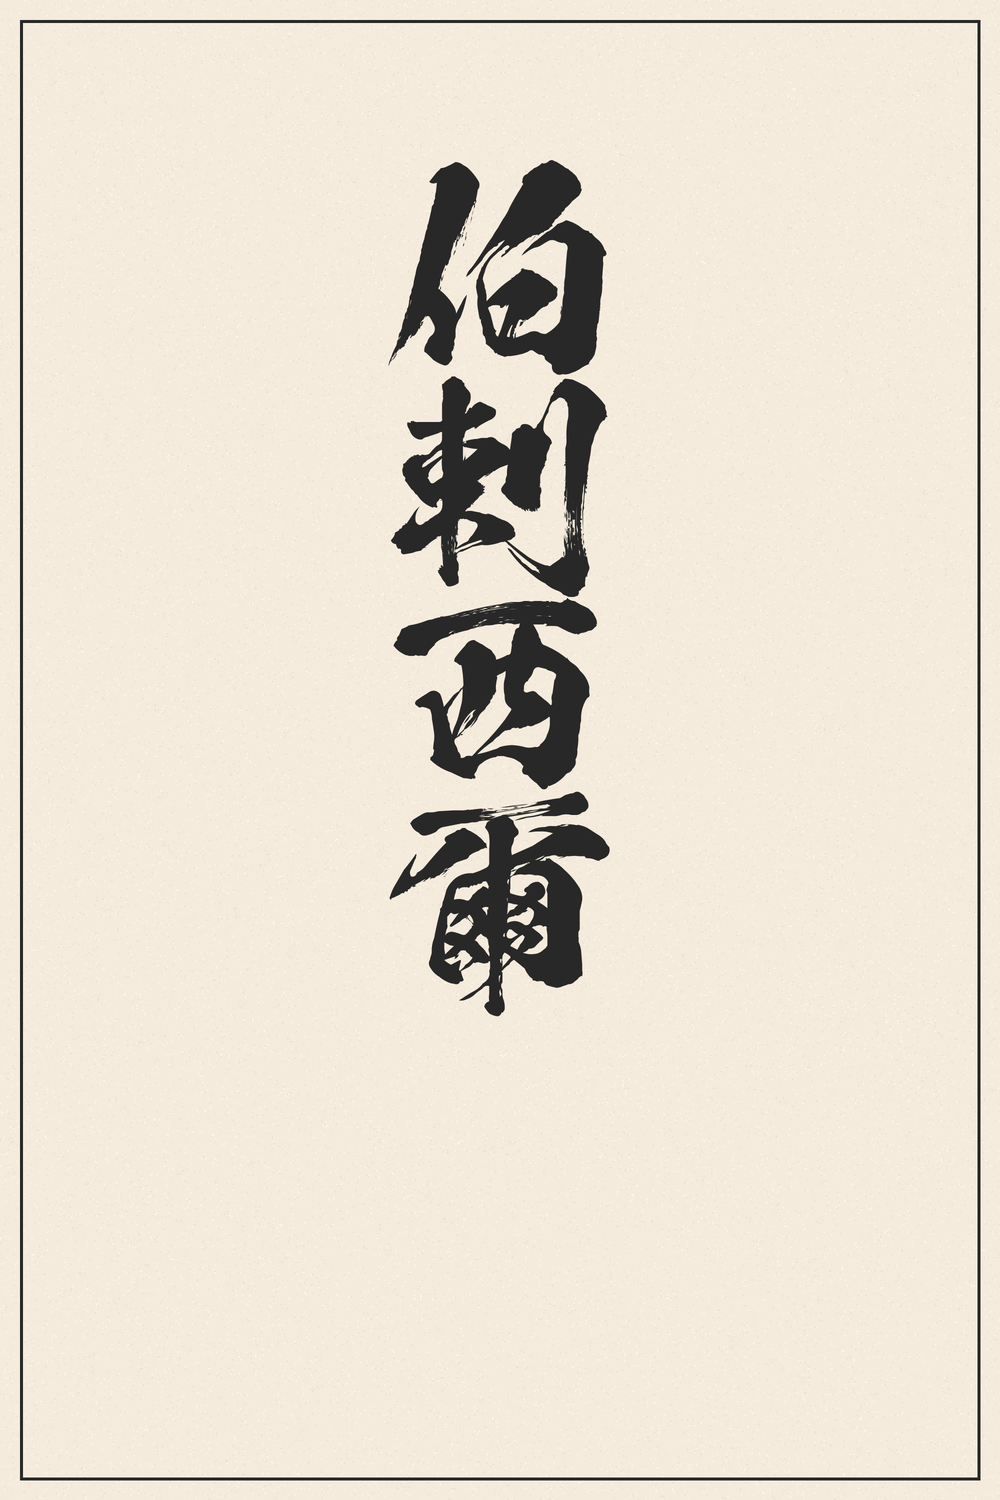 伯剌西爾